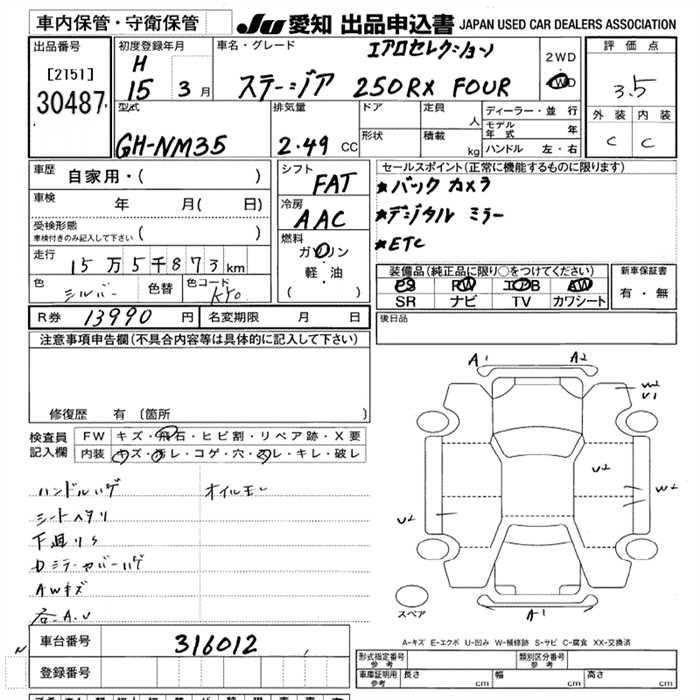 車内保管・守衛保管 JU 愛知 出品申込書 JAPAN USED CAR DEALERS ASSOCIATION
出品番号 初度登録年月 車名・グレード エアロセレクション 2WD 評価点
[2151] H
30487 15 3月 ステージア 250RX FOUR 4WD 3.5
型式 排気量 ドア 定員 人 ディーラー・並行 外装 内装
モデル年式 年
GH-NM35 2.49 CC 形状 積載 kg ハンドル 左・右 C C
車歴 自家用・( ) シフト FAT セールスポイント(正常に機能するものに限ります)
車検 年 月( 日) 冷房 AAC *バックカメラ
受検形態 車検付きのみ記入して下さい ( ) 燃料 ガソリン・軽・油 ( ) *デジタルミラー
走行 15万5千873km *ETC
色 シルバー 色替 色コード KY0 装備品(純正品に限り○をつけてください) 新車保証書
PS PW エアB AW 有・無
SR ナビ TV カワシート
R券 13990円 名変期限 月 日 後日品
注意事項申告欄(不具合内容等は具体的に記入して下さい)
修復歴 有 〔箇所
A1 A2
W2
V1
検査員記入欄 FW キズ・飛石・ヒビ割・リペア跡・X要
内装 キズ・汚レ・コゲ・穴・スレ・キレ・破レ
U2 W2
U2
ハンドルハゲ オイルモレ
シートヘタリ
下廻りS
Dミラーカバーハゲ
AWキズ
各A.U
スペア A-1
A-キズ E-エクボ U-凹み W-補修跡 S-サビ C-腐食 XX-交換済
車台番号 316012
登録番号
形式指定番号 参考 類別区分番号 参考
車庫証明用 参考 長さ cm 幅 cm 高さ cm